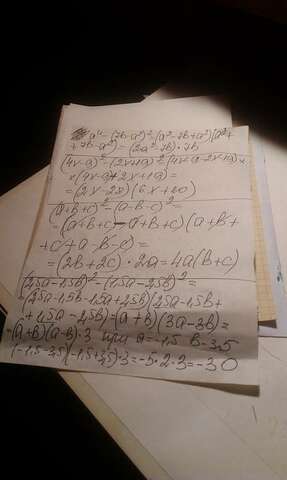 a⁴-(7b-a²)²=(a²-7b+a²)(a²+
+7b-a²)=(2a²-7b)·7b
(4x-a)²-(2x+a)²=(4x-a-2x+a)×
×(4x-a+2x+a)=
=(2x-2a)(6x+a0)
(a+b+c)²-(a-b-c)²=
=(a+b+c-a+b+c)(a+b+
+c+a-b-c)=
=(2b+2c)·2a=4a(b+c)
(2,5a-1,5b)²-(1,5a-2,5b)²=
(2,5a-1,5b-1,5a+2,5b)(2,5a-1,5b+
+1,5a-2,5b)=(a+b)(3a-3b)=
=(a+b)(a-b)·3 при a=-1,5 b=-3,5
(-1,5-3,5)(-1,5+3,5)·3=-5·2·3=-30